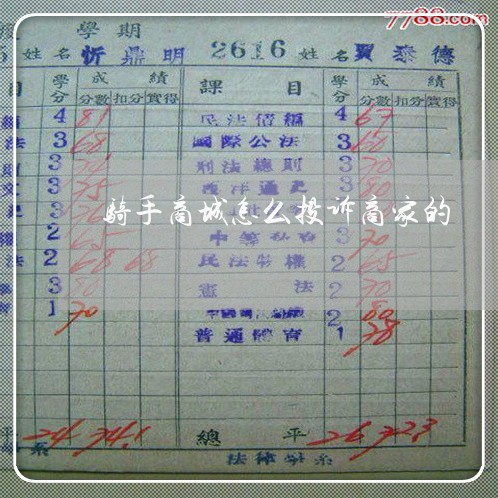 7788.com
學期
姓名 忻鼎明 2616 姓名 賈泰德
目 學分 成績 課目 學分 成績
分數 扣分 實得 分數 扣分 實得
4 81 民法債編 4 67
法 3 68 國際公法 3 60
3 刑法總則 3 70
3 75 西洋通史 3 80
騎手商城怎么投诉商家的
2 65 3 70
法 2 68 68 民法物權 2 65
3 80 憲法 2 70
1 70 2 80
普通體育 1 78
平 24 74.1 總平 26 72.3
系 法律學系